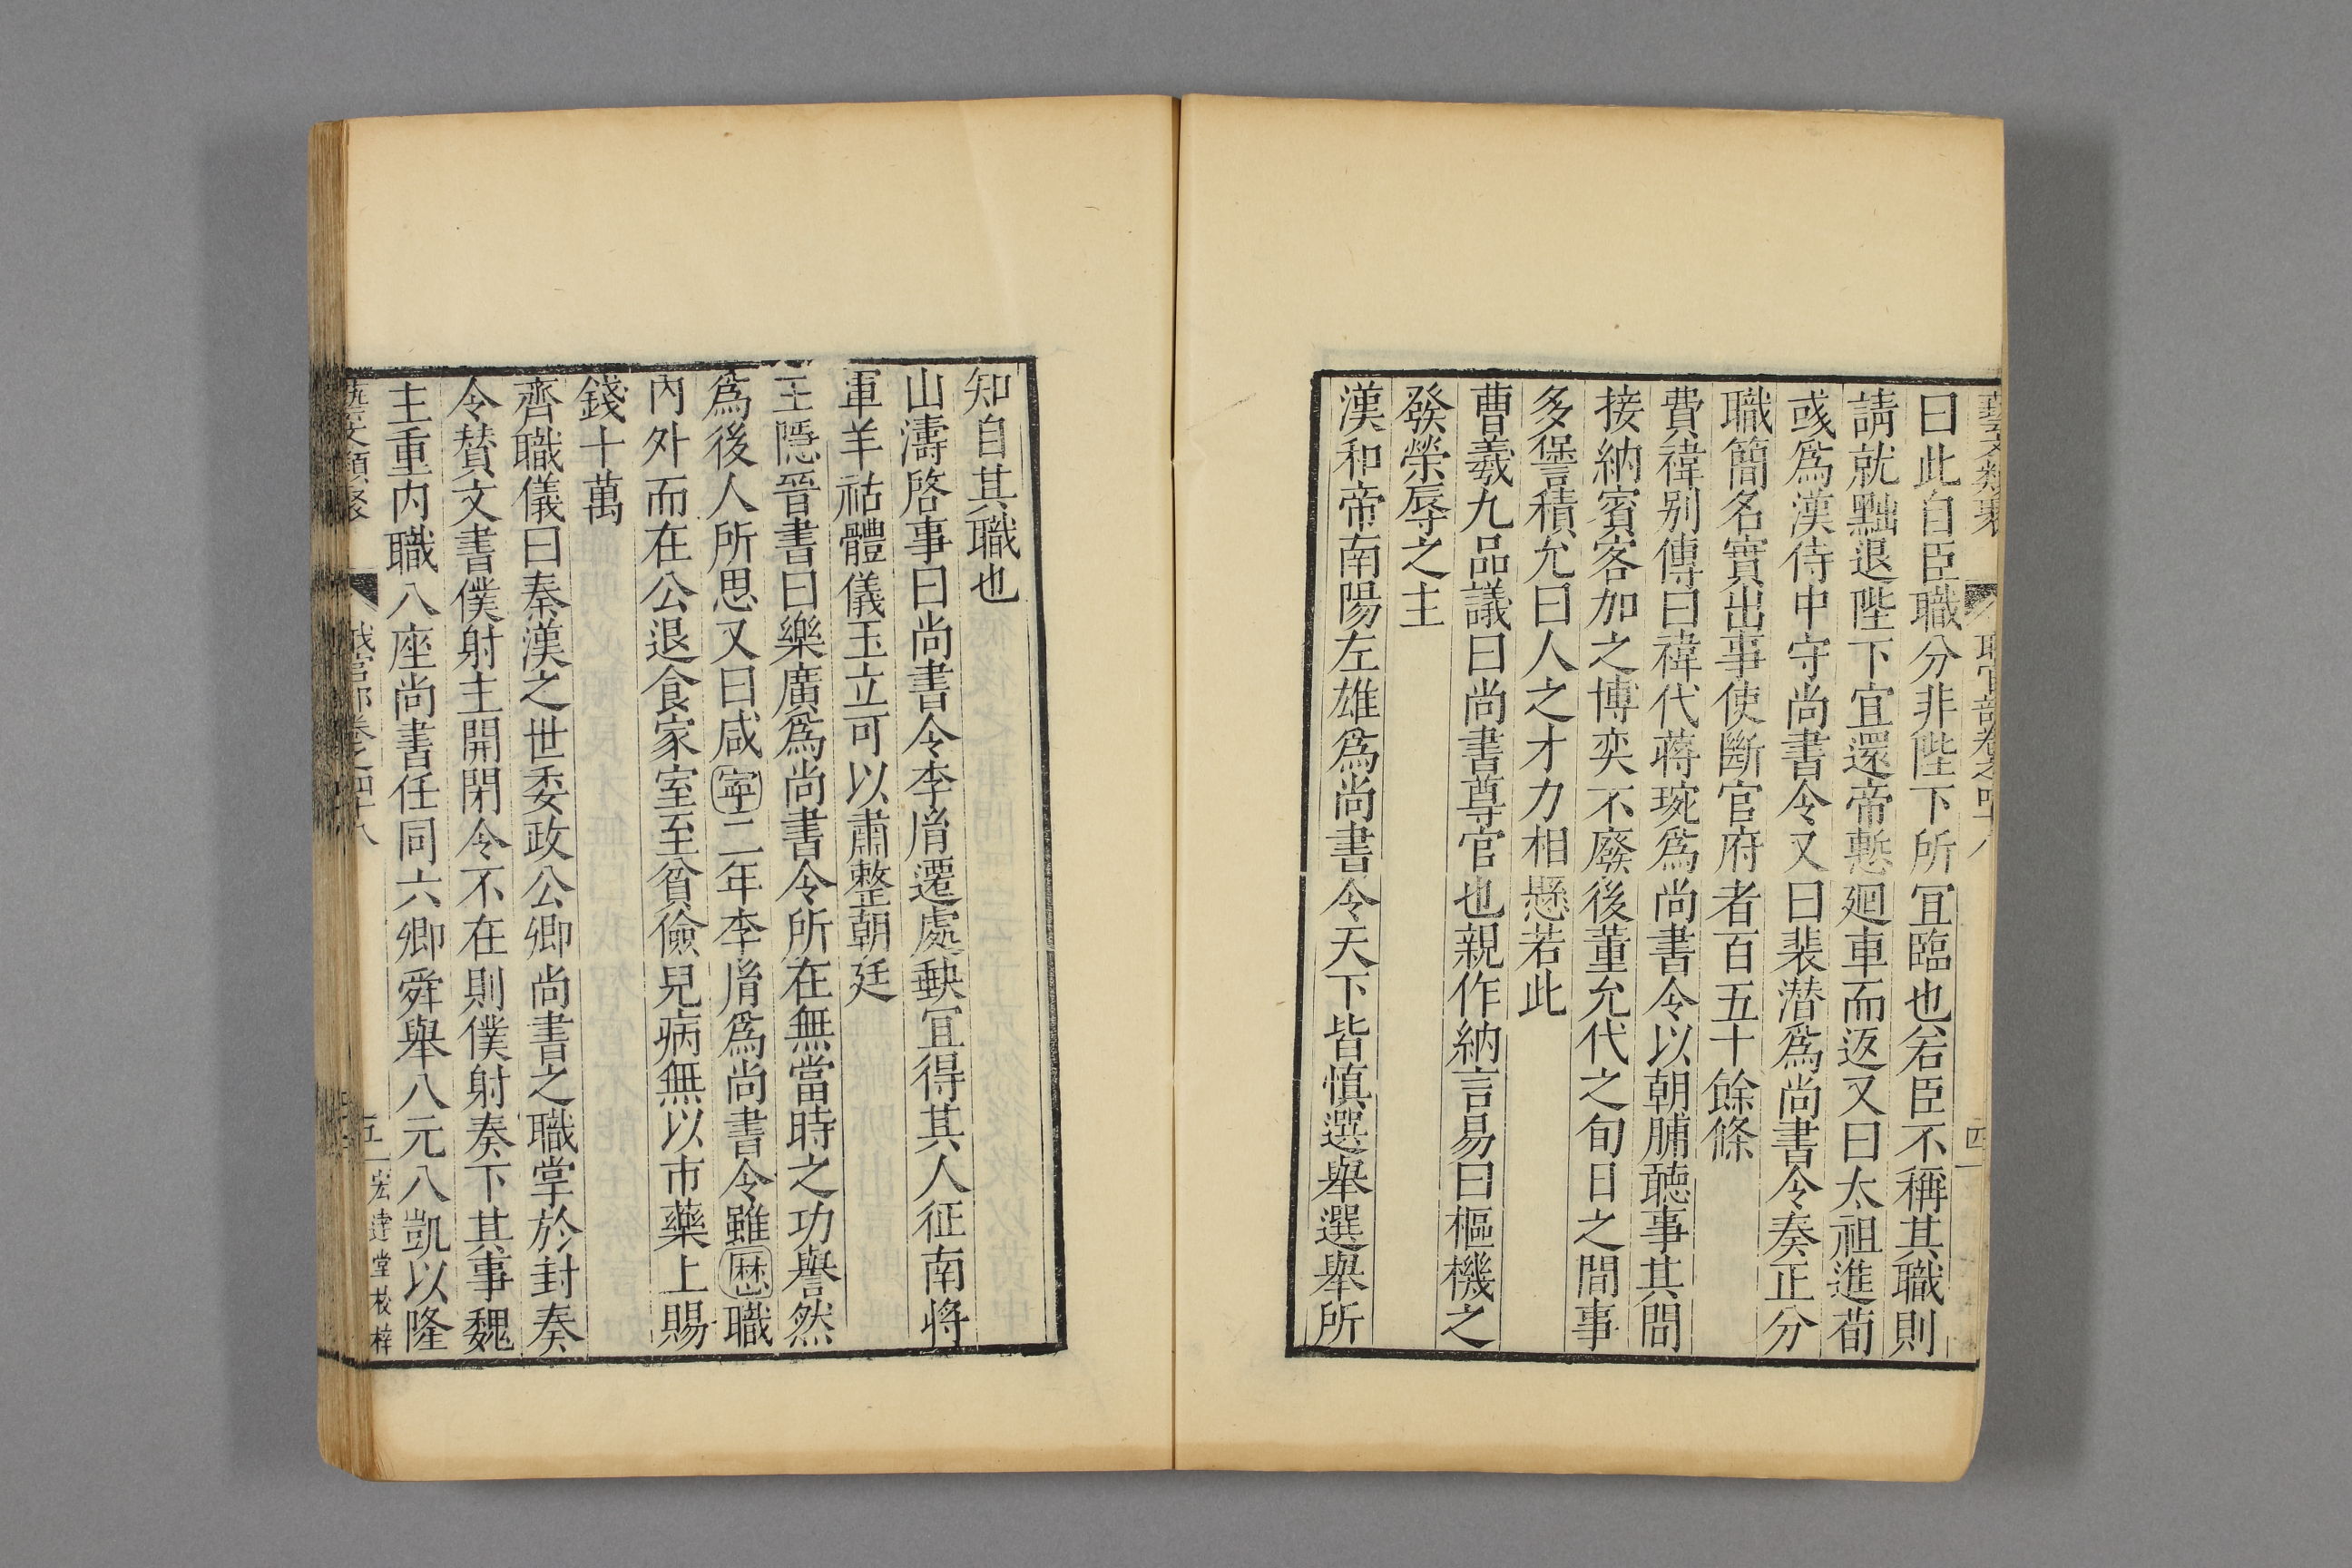 藝文類聚 職官部卷之四十八 四
曰此自臣職分非陛下所宜臨也若臣不稱其職則
請就黜退陛下宜還帝慙廻車而返又曰太祖進荀
彧爲漢侍中守尚書令又曰裴潜爲尚書令奏正分
職簡名實出事使斷官府者百五十餘條
費禕别傳曰禕代蔣琬爲尚書令以朝脯聽事其間
接納賓客加之博奕不廢後董允代之旬日之間事
多堡積允曰人之才力相懸若此
曹羲九品議曰尚書尊官也親作納言易曰樞機之
發榮辱之主
漢和帝南陽左雄爲尚書令天下皆慎選舉選舉所
知自其職也
山濤啓事曰尚書令李胤遷處缺宜得其人征南將
軍羊祜體儀玉立可以肅整朝廷
王隱晉書曰樂廣爲尚書令所在無當時之功譽然
爲後人所思又曰咸寧二年李胤爲尚書令雖歷職
内外而在公退食家室至貧儉兒病無以市藥上賜
錢十萬
齊職儀曰秦漢之世委政公卿尚書之職掌於封奏
令賛文書僕射主開閉令不在則僕射奏下其事魏
主重内職八座尚書任同六卿舜舉八元八凱以隆
藝文類聚 職官部卷之四十八 五 宏達堂校梓